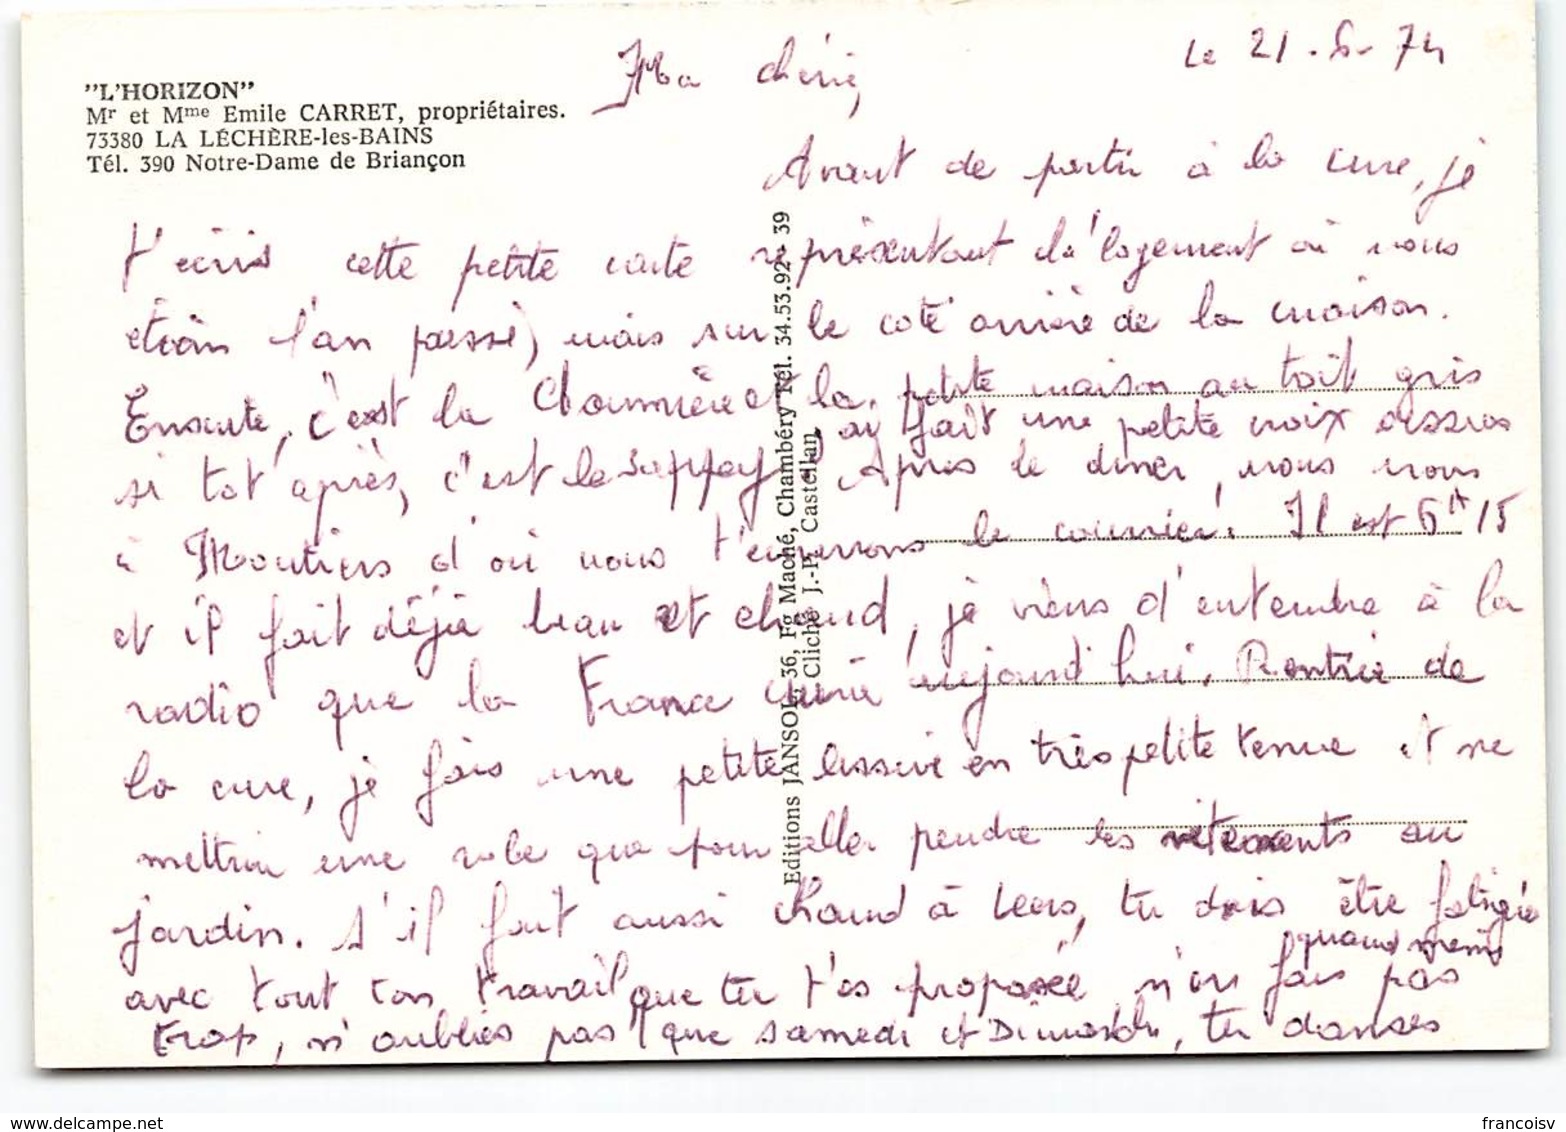 "L'HORIZON"
Mr et Mme Emile CARRET, propriétaires.
73380 LA LÉCHÈRE-les-BAINS
Tél. 390 Notre-Dame de Briançon
Le 21-6-74
Ma chérie,
Avant de partir à la cure, je
t'écris cette petite carte représentant le logement où nous
étions l'an passé, mais sur le côté arrière de la maison.
Ensuite, c'est la Chaumière et la petite maison au toit gris
si tot après, c'est le j'ai fait une petite croix dessus
Après le diner, nous nous
à Moutiers d'où nous t'enverrons le courrier. Il est 6H15
et il fait déjà beau et chaud, je viens d'entendre à la
radio que la France aujourd'hui. Rentrée de
la cure, je fais une petite lessive en très petite tenue et ne
mettrai une robe que pour aller pendre les vêtements au
jardin. S'il fait aussi chaud à Lens, tu dois être fatiguée
avec tout ton travail que tu t'es proposée n'en fais pas
quand même
trop, n'oublies pas que samedi et Dimanche, tu danses
Editions JANSOL, 36, Fg Maché, Chambéry Tél. 34.53.92 - 39
Cliché J.-P. Castellan
francoisv